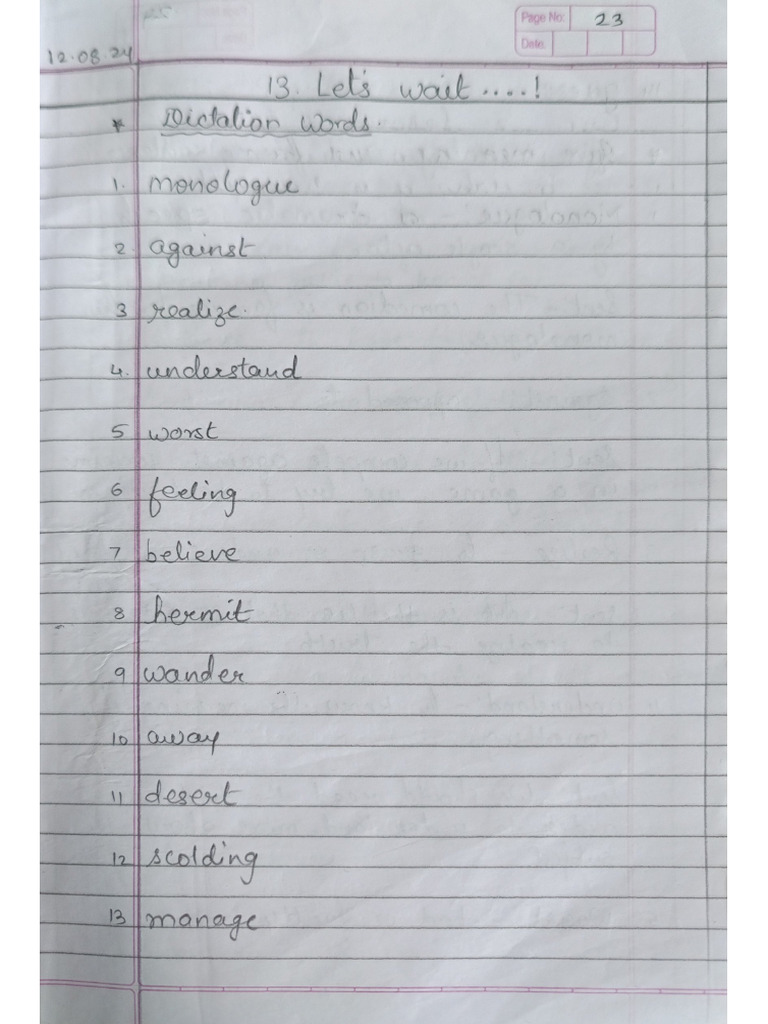 Page No: 23
Date:
12.08.24
13. Let's wait ....!
* Dictation Words.
1. monologue
2. against
3 realize.
4. understand
5 worst
6 feeling
7 believe
8 hermit
9 wander
10 away
11 desert
12 scolding
13 manage